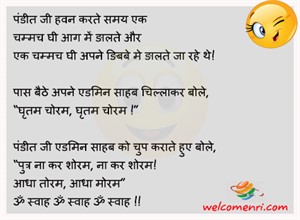 पंडीत जी हवन करते समय एक
चम्मच घी आग में डालते और
एक चम्मच घी अपने डिबबे मे डालते जा रहे थे!
पास बैठे अपने एडमिन साहब चिल्लाकर बोले,
“घृतम चोरम, घृतम चोरम !”
पंडीत जी एडमिन साहब को चुप कराते हुए बोले,
“पुत्र ना कर शोरम, ना कर शोरम!
आधा तोरम, आधा मोरम”
ॐ स्वाह ॐ स्वाह ॐ स्वाह !!
welcomenri.com